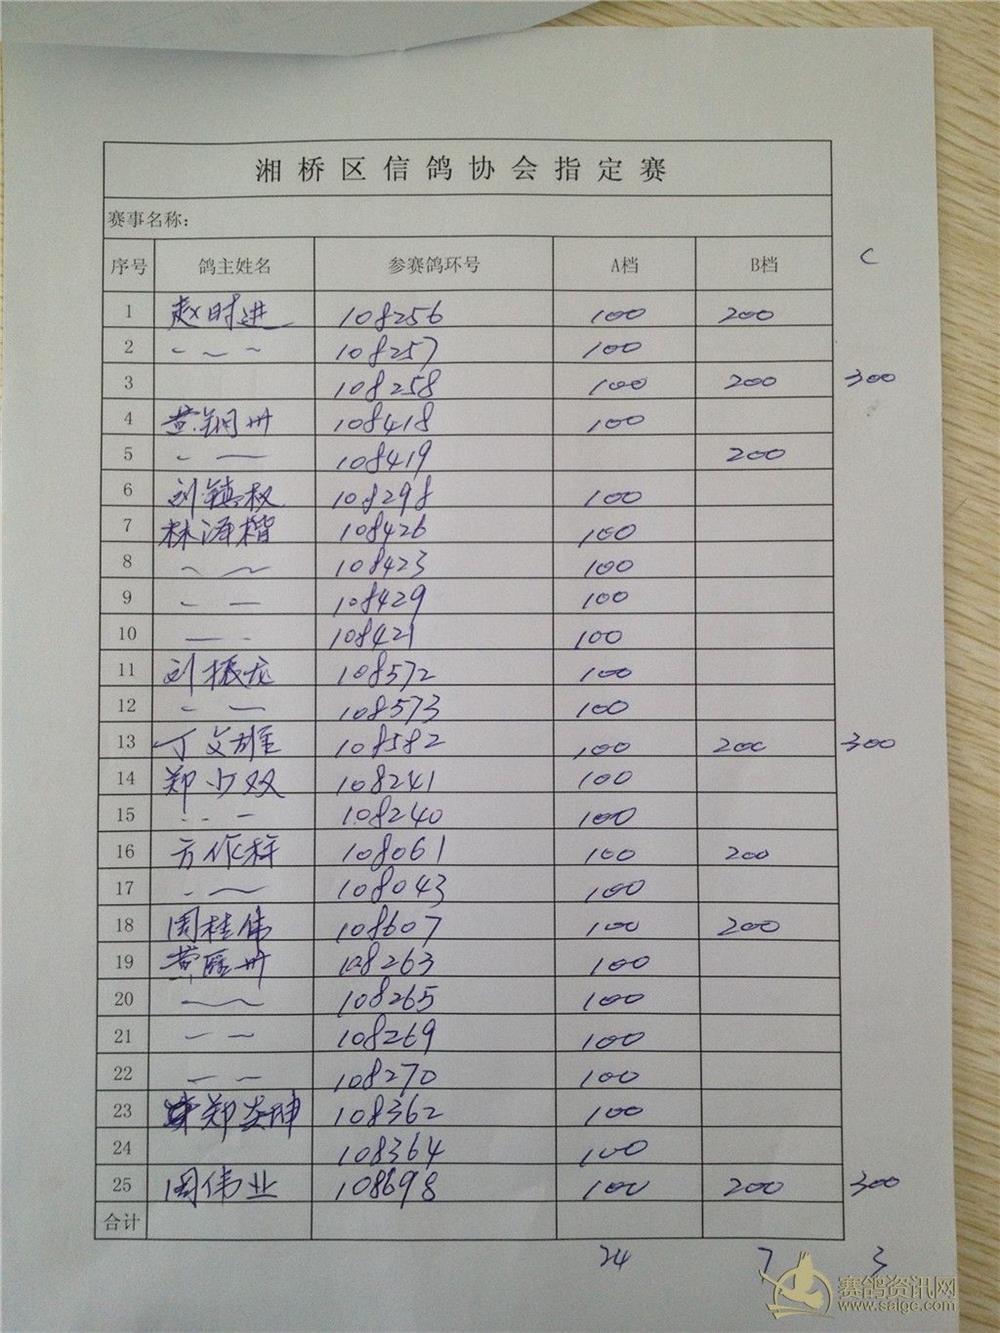 湘桥区信鸽协会指定赛
赛事名称:
序号 鸽主姓名 参赛鸽环号 A档 B档 C
1 赵时进 108256 100 200
2 — — — 108257 100
3 108258 100 200 300
4 黄钢州 108418 100
5 — — 108419 200
6 刘镇权 108298 100
7 林海楷 108426 100
8 — — 108423 100
9 — — 108429 100
10 — — 108421 100
11 刘振龙 108572 100
12 — — 108573 100
13 丁文雄 108582 100 200 300
14 郑少双 108241 100
15 — — 108240 100
16 方作标 108061 100 200
17 — — 108043 100
18 周桂伟 108607 100 200
19 黄 州 108263 100
20 — — 108265 100
21 — — 108269 100
22 — — 108270 100
23 郑炎坤 108362 100
24 108364 100
25 周伟业 108698 100 200 300
合计
24 7 3
赛鸽资讯网
www.saigc.com